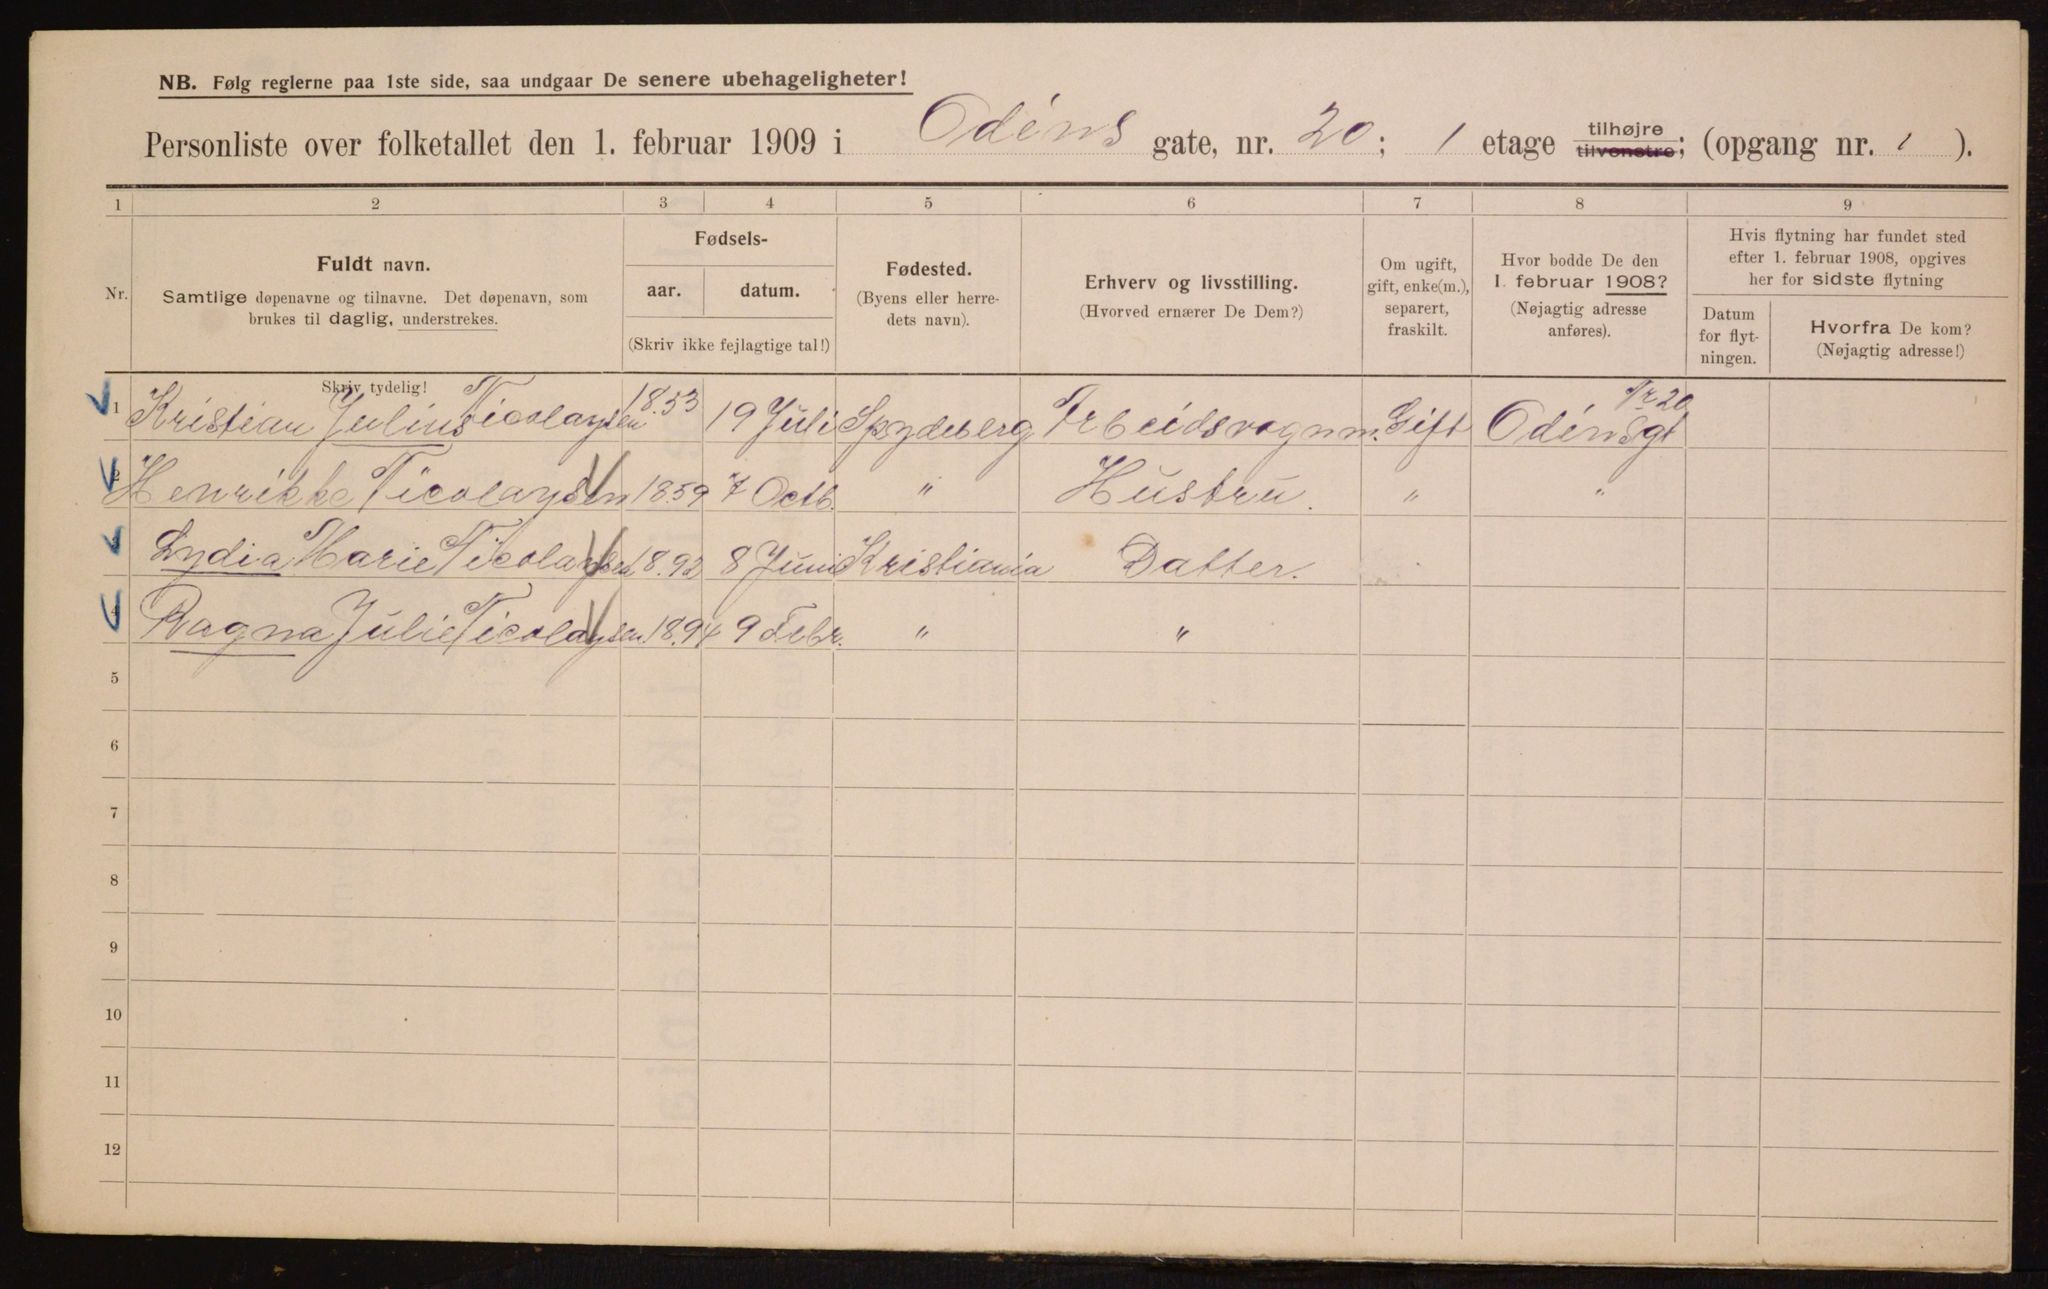 NB. Følg reglerne paa 1ste side, saa undgaar De senere ubehageligheter!
Personliste over folketallet den 1. februar 1909 i Odéns gate, nr. 20; 1 etage tilhøjre tilvenstre; (opgang nr. 1 ).
1 2 3 4 5 6 7 8 9
Nr.
Fuldt navn.
Samtlige døpenavne og tilnavne. Det døpenavn, som
brukes til daglig, understrekes.
Skriv tydelig!
Fødsels-
aar. datum.
(Skriv ikke fejlagtige tal!)
Fødested.
(Byens eller herre-
dets navn).
Erhverv og livsstilling.
(Hvorved ernærer De Dem?)
Om ugift,
gift, enke(m.),
separert,
fraskilt.
Hvor bodde De den
1. februar 1908?
(Nøjagtig adresse
anføres).
Hvis flytning har fundet sted
efter 1. februar 1908, opgives
her for sidste flytning
Datum
for flyt-
ningen.
Hvorfra De kom?
(Nøjagtig adresse!)
1 Kristian Julius Nicolaysen 18.53 19 Juli Spydeberg Arbeidsvognm. Gift Odénsgt Nr 20
2 Henrikke Nicolaysen 18.59 7 Octb. " Hustru. " "
3 Lydia Marie Nicolaysen 18.92 8 Juni Kristiania Datter.
4 Ragna Julie Nicolaysen 18.94 9 Febr. " "
5
6
7
8
9
10
11
12